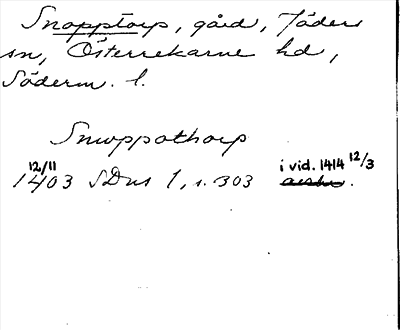 Snopptorp, gård, Jäders
sn, Österrekarne hd,
Söderm. l.
Snwppathorp
12/11
1403 SDns 1, s. 303 i vid. 1414 12/3